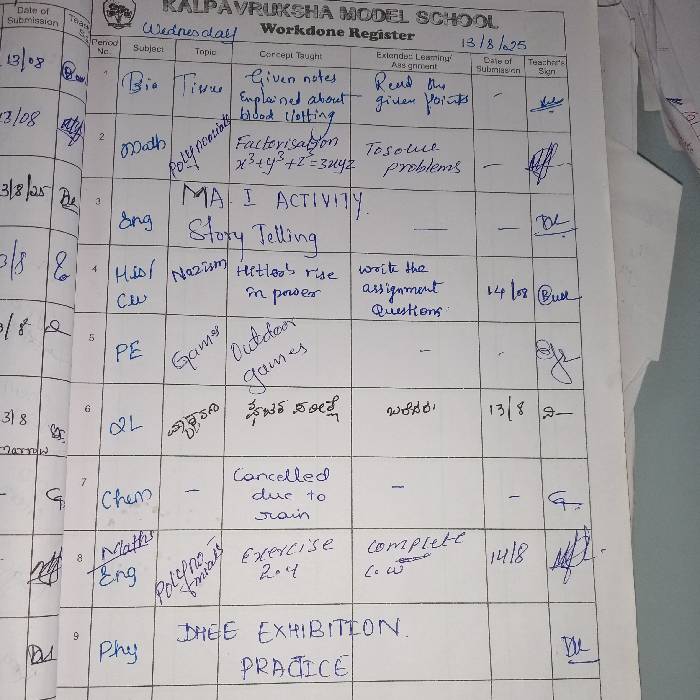 KALPAVRUKSHA MODEL SCHOOL
Workdone Register
Wednesday
13/8/25
Date of Submission
Period No.
Subject
Topic
Concept Taught
Extended Learning/ Assignment
Date of Submission
Teacher's Sign
1
Bio
Tissue
Given notes
Explained about
blood clotting
Read the
given points
-
2
Math
Polynomials
Factorisation
x³+y³+z³=3xyz
To solve
problems
-
3
Eng
MA - I ACTIVITY
Story Telling
-
-
4
His/
Civ
Nazism
Hitler's rise
in power
write the
assignment
Questions
14/08
5
PE
Games
Outdoor
games
-
-
6
2L
13/8
7
Chem
-
Cancelled
due to
rain
-
-
8
Maths
Eng
Polyno
mials
Exercise
2.4
Complete
C.W
14/8
9
Phy
DHEE EXHIBITION
PRACTICE
13/08
13/08
3/8/25
3/8
3/8